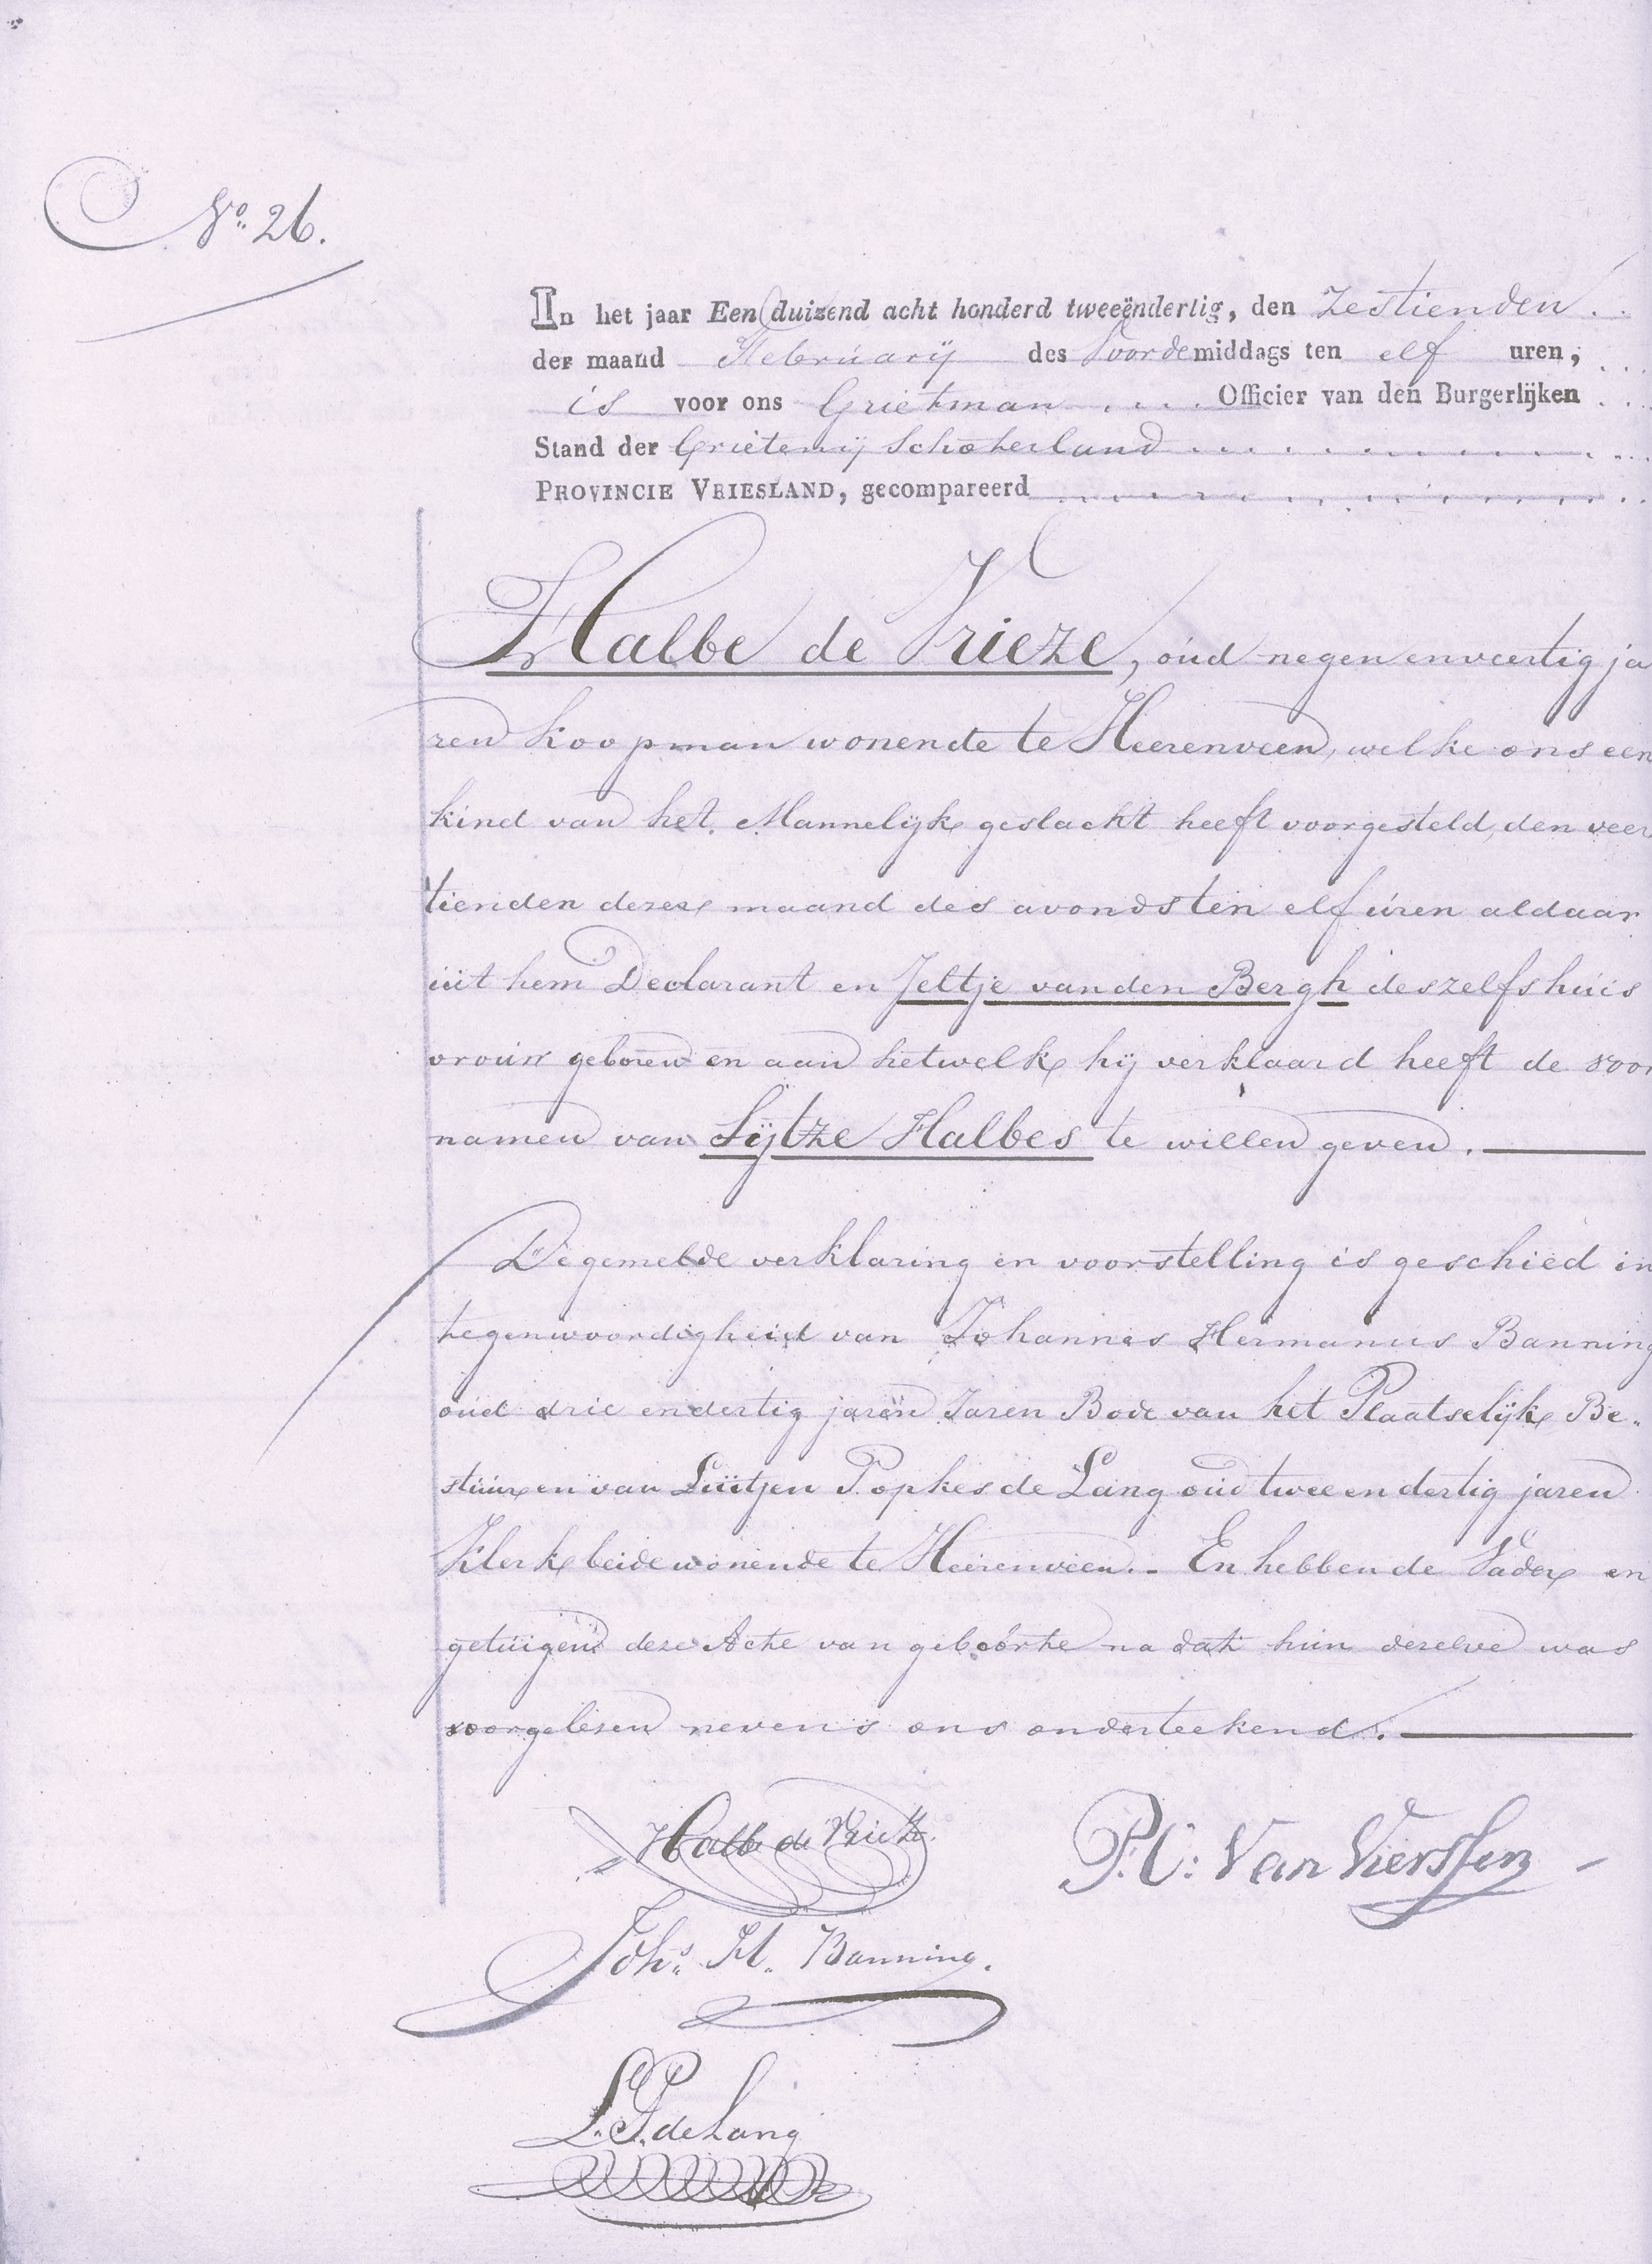 No. 26.
In het jaar Een duizend acht honderd tweeëndertig, den zestienden
der maand Februarij des Voordemiddags ten elf uren,
is voor ons Grietman Officier van den Burgerlijken
Stand der Grietenij Schoterland
PROVINCIE VRIESLAND, gecompareerd
Halbe de Vrieze, oud negen en veertig ja
ren koopman wonende te Heerenveen, welke ons een
kind van het Mannelijk geslacht heeft voorgesteld, den veer
tienden dezer maand des avonds ten elf uren aldaar
uit hem Declarant en Jeltje van den Bergh deszelfs huis
vrouw geboren en aan hetwelk hij verklaard heeft de voor
namen van Sijtze Halbes te willen geven.
De gemelde verklaring en voorstelling is geschied in
tegenwoordigheid van Johannes Hermanus Banning
oud drie en dertig jaren Jaren Bode van het Plaatselijk Be-
stuur en van Luitjen Popkes de Lang oud twee en dertig jaren
Klerk beide wonende te Heerenveen. - En hebben de Vader en
getuigens deze Acte van geboorte na dat hun dezelve was
voorgelezen nevens ons onderteekend.
Halbe de Vrieze P.C: Van Vierssen
Johs. H. Banning.
L. P. de Lang